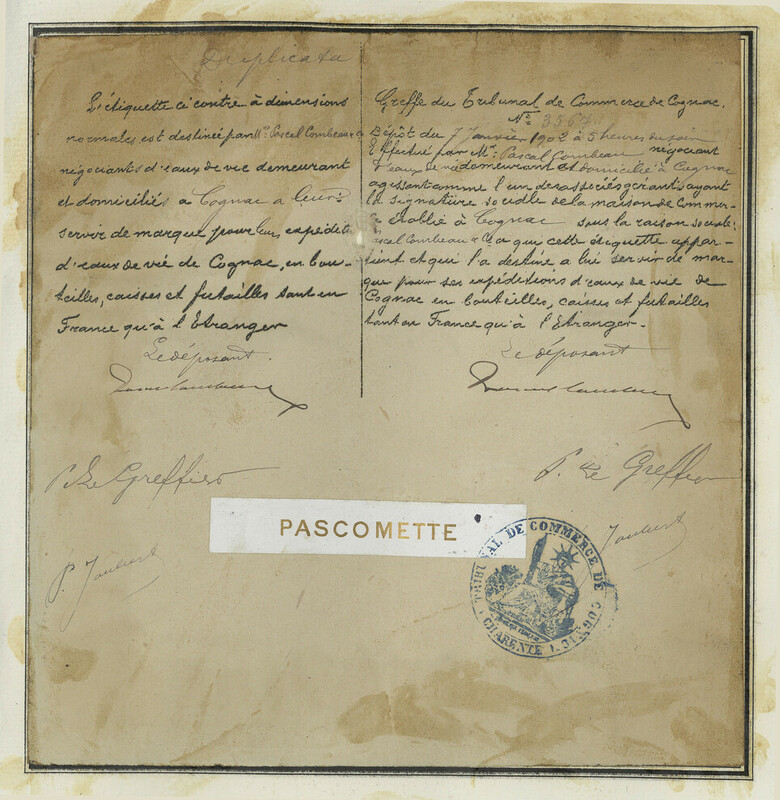 Duplicata
L'étiquette ci contre à dimensions
normales est destinée par Mr. Pascal Combeau & Co
négociants d'eaux de vie demeurant
et domiciliés à Cognac a leur
servir de marque pour leurs expéditions
d'eaux de vie de Cognac, en bou-
teilles, caisses et futailles tant en
France qu'à l'Etranger
Le déposant
P. Le Greffier
P. Joubert
Greffe du Tribunal de Commerce de Cognac.
No. 3364
Dépôt du 7 Janvier 1902 à 5 heures du soir
Effectué par Mr. Pascal Combeau négociant
d'eaux de vie demeurant et domicilié à Cognac
agissant comme l'un des associés gérants ayant
la signature sociale de la maison de Commer-
ce établie à Cognac sous la raison sociale:
Pascal Combeau & Co que cette étiquette appar-
tient et qui l'a destine a lui servir de mar-
que pour ses expéditions d'eaux de vie de
Cognac en bouteilles, caisses et futailles
tant en France qu'à l'Etranger.
Le déposant
P. Le Greffier
Joubert
PASCOMETTE
TRIBUNAL DE COMMERCE DE COGNAC
CHARENTE